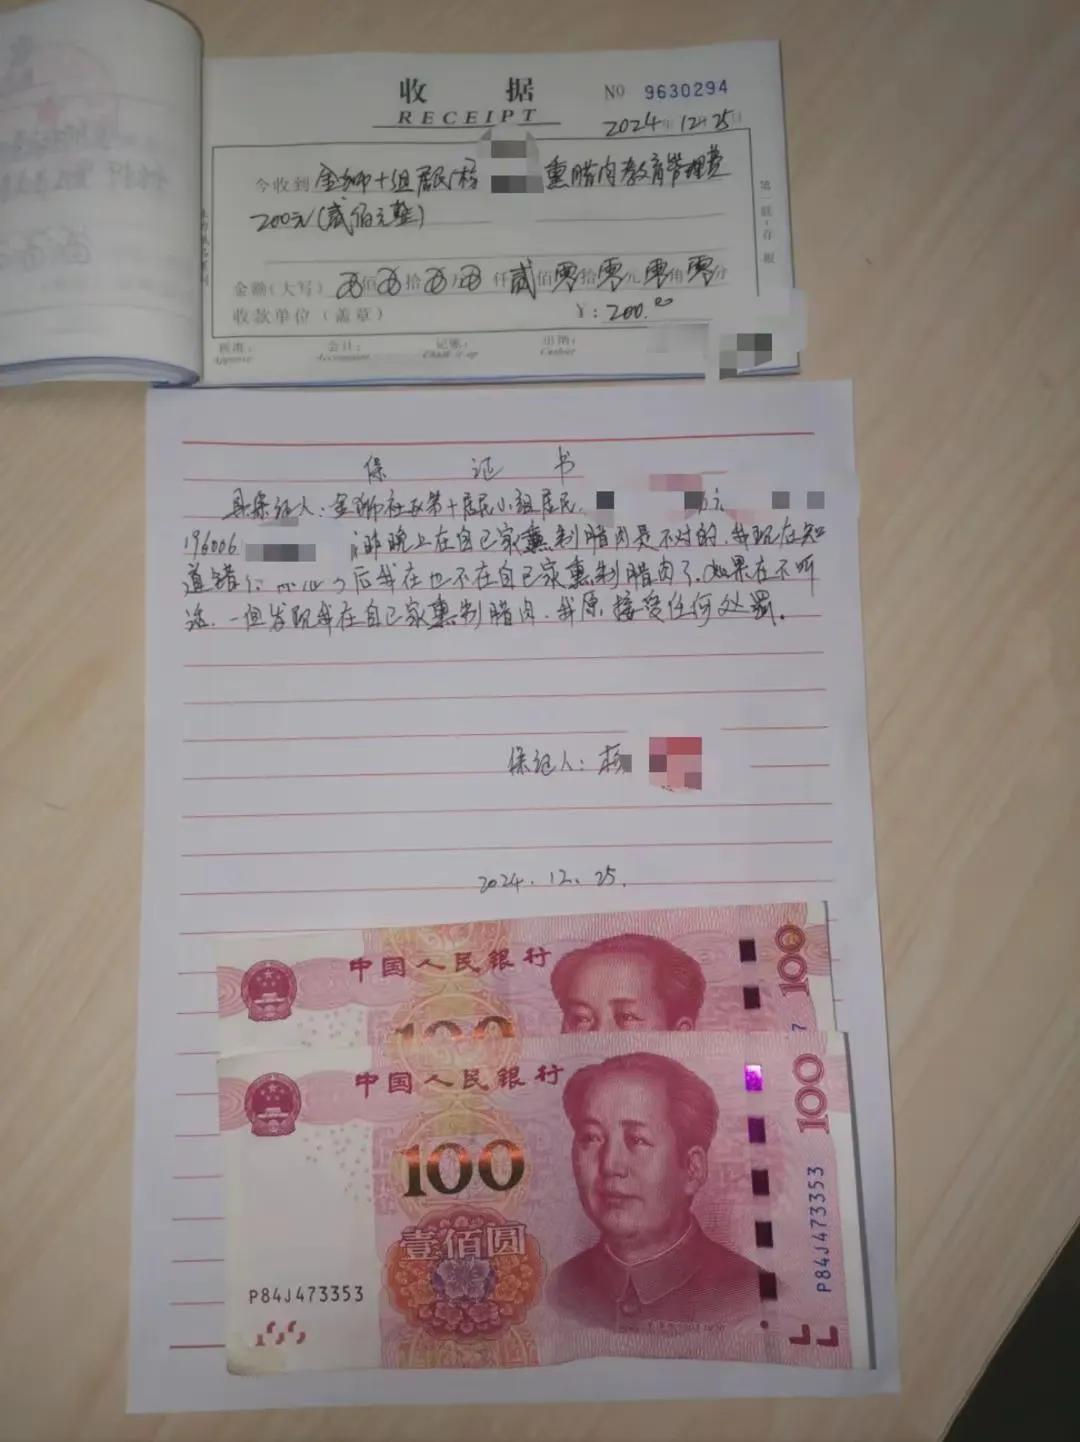 收 据
RECEIPT
No 9630294
2024年12月25日
今收到 金狮十组居民杨 熏腊肉教育管理费
200元(贰佰元整)
金额(大写) 佰 拾 万 仟 贰佰零拾零元零角零分
收款单位(盖章) ¥:200.00
核准: 会计: 记账: 出纳:
Approve Accountant Chalk it up Cashier
第一联:存根
保 证 书
具保证人:金狮社区第十居民小组居民,
196006 昨晚上在自己家熏制腊肉是不对的,我现在知
道错 后我在也不在自己家熏制腊肉了,如果在不听
话,一但发现我在自己家熏制腊肉,我原接受任何处罚。
保证人:杨
2024.12.25.
中国人民银行
100
100
7
中国人民银行
100
100
壹佰圆
P84J473353
P84J473353